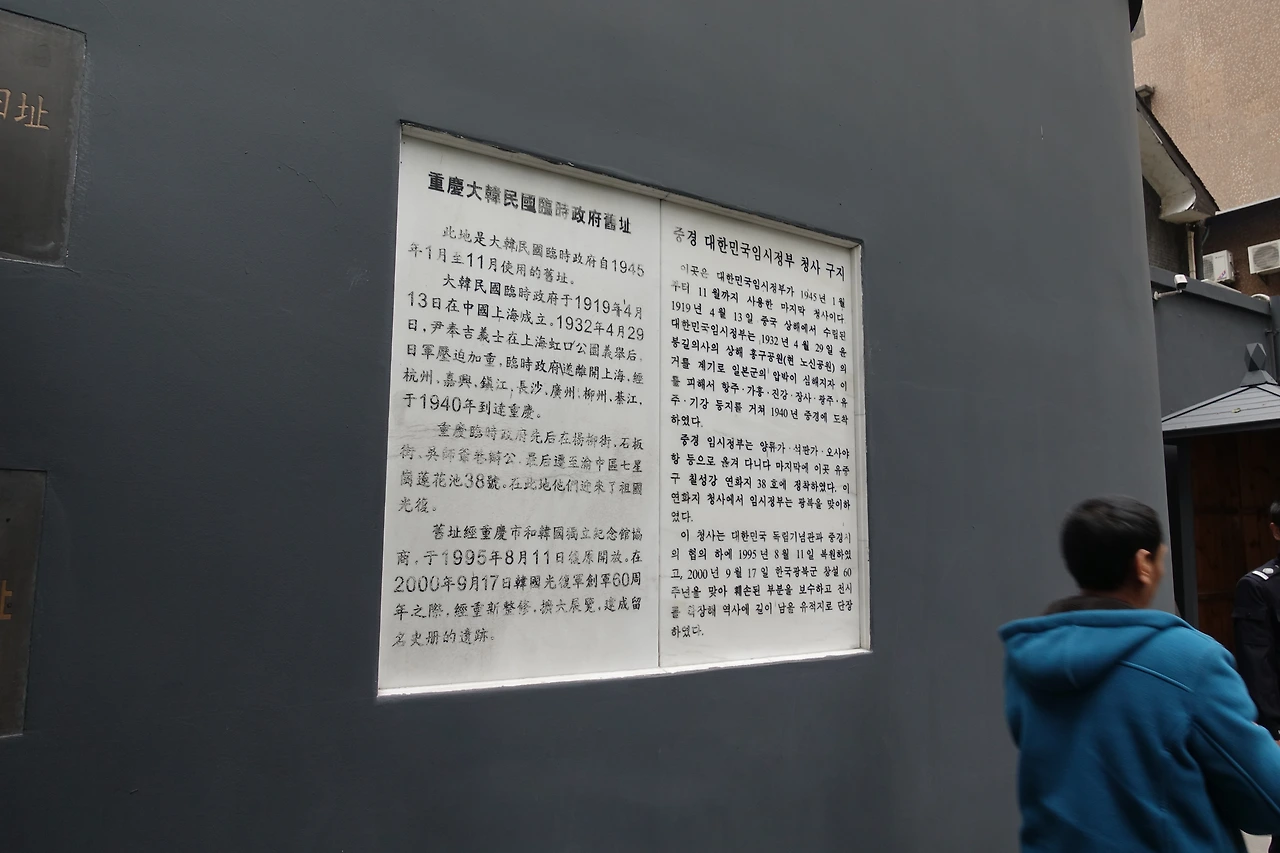 址
重慶大韓民國臨時政府舊址
此地是大韓民國臨時政府自1945
年1月至11月使用的舊址。
大韓民國臨時政府于1919年4月
13日在中國上海成立。1932年4月29
日，尹奉吉義士在上海虹口公園義舉后，
日軍壓迫加重，臨時政府遂離開上海，經
杭州、嘉興、鎮江、長沙、廣州、柳州、綦江，
于1940年到達重慶。
重慶臨時政府先后在楊柳街、石板
街、吳師爺巷辦公，最后遷至渝中區七星
崗蓮花池38號。在此地他們迎来了祖國
光復。
舊址經重慶市和韓國獨立紀念館協
商，于1995年8月11日復原開放。在
2000年9月17日韓國光復軍創軍60周
年之際，經重新整修，擴大展覽，建成留
名史册的遺跡。
중경 대한민국임시정부 청사 구지
이곳은 대한민국임시정부가 1945년 1월
부터 11월까지 사용한 마지막 청사이다
1919년 4월 13일 중국 상해에서 수립된
대한민국임시정부는, 1932년 4월 29일 윤
봉길의사의 상해 홍구공원(현 노신공원) 의
거를 계기로 일본군의 압박이 심해지자 이
를 피해서 항주·가흥·진강·장사·광주·유
주·기강 등지를 거쳐 1940년 중경에 도착
하였다.
중경 임시정부는 양류가·석판가·오사야
항 등으로 옮겨 다니다 마지막에 이곳 유중
구 칠성강 연화지 38호에 정착하였다. 이
연화지 청사에서 임시정부는 광복을 맞이하
였다.
이 청사는 대한민국 독립기념관과 중경시
의 협의 하에 1995년 8월 11일 복원하였
고, 2000년 9월 17일 한국광복군 창설 60
주년을 맞아 훼손된 부분을 보수하고 전시
를 확장해 역사에 길이 남을 유적지로 단장
하였다.